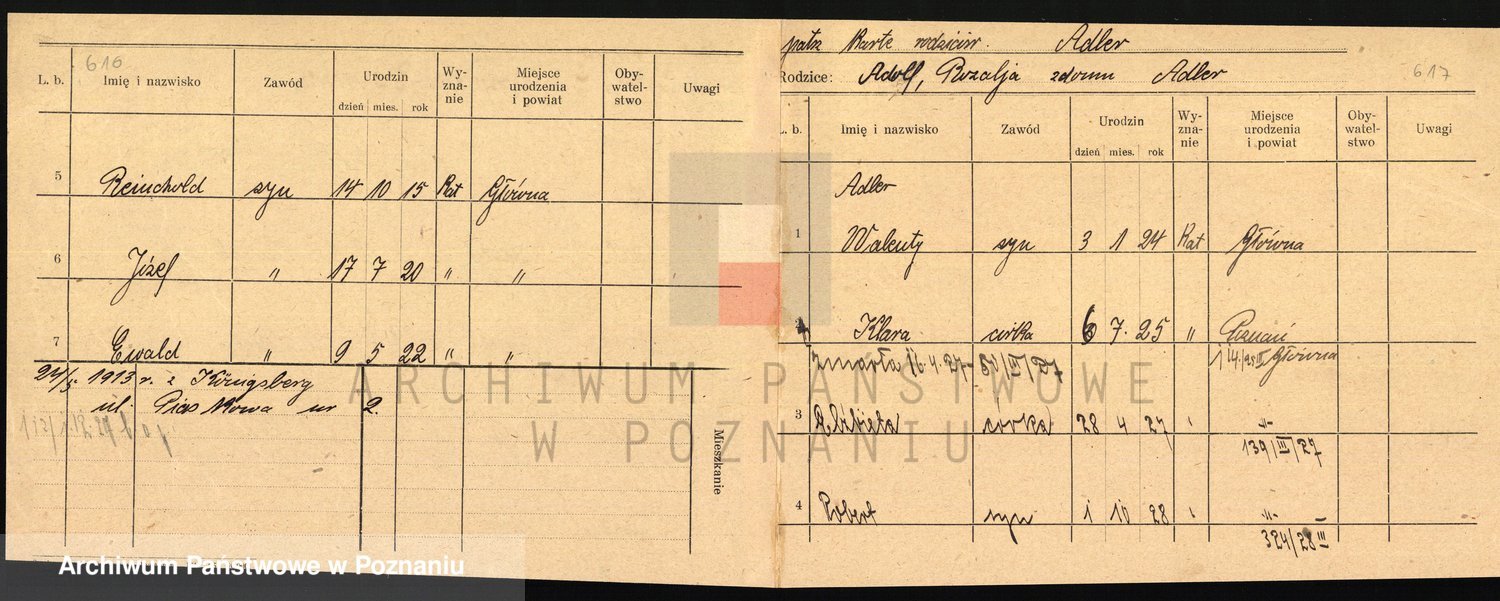 616
L. b. Imię i nazwisko Zawód Urodzin dzień mies. rok Wy-zna-nie Miejsce urodzenia i powiat Oby-watel-stwo Uwagi
5 Reinchold syn 14 10 15 Kat Główna
6 Józef " 17 7 20 " "
7 Ewald " 9 5 22 " "
24/5 1913 r. z Königsberg
ul. Piaskowa nr 2.
Mieszkanie
patrz Kartę rodziców. Adler
Rodzice: Adolf, Rozalja zdomu Adler
617
L. b. Imię i nazwisko Zawód Urodzin dzień mies. rok Wy-zna-nie Miejsce urodzenia i powiat Oby-watel-stwo Uwagi
Adler
1 Walenty syn 3 1 24 Kat Główna
2 Klara córka 6 7. 25 " Poznań
Zmarła 16.4.27 - 80/III/27 Główna
3 Elżbieta córka 28 4 27 " -"-
139/III/27
4 Robert syn 1 10 28 " -"-
324/28 III
ARCHIWUM PAŃSTWOWE
W POZNANIU
Archiwum Państwowe w Poznaniu